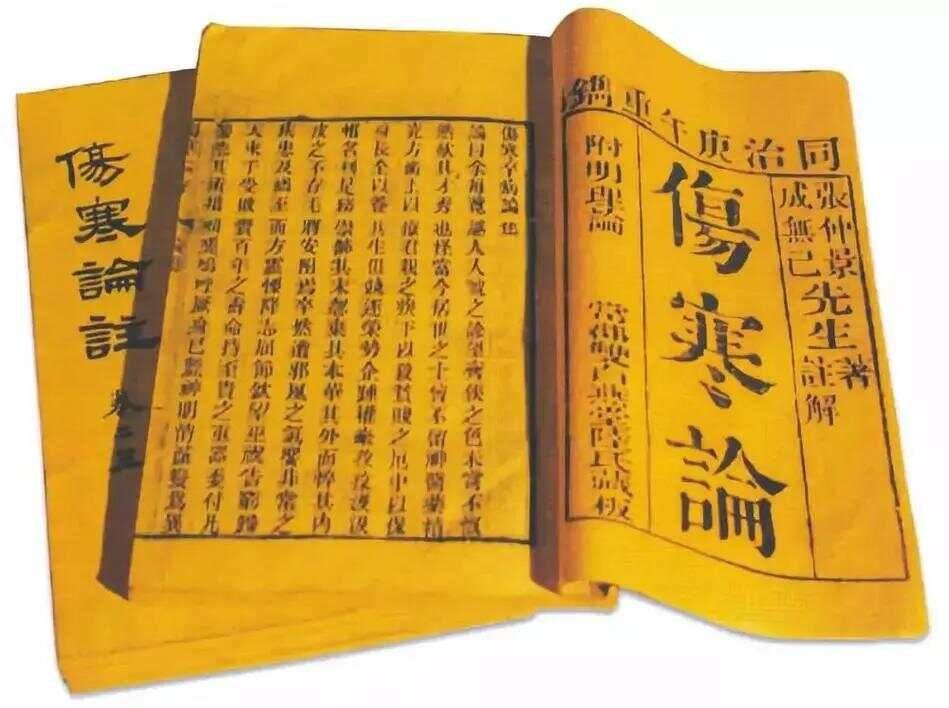 同治庚午重鐫
張仲景先生著
成無己註解
傷寒論
附明理論
藏板
傷寒卒病論集
論曰余每覽越人入虢之診望齊侯之色未嘗不慨
然歎其才秀也怪當今居世之士曾不留神醫藥精
究方術上以療君親之疾下以救貧賤之厄中以保
身長全以養其生但競逐榮勢企踵權豪孜孜汲汲
惟名利是務崇飾其末忽棄其本華其外而悴其內
皮之不存毛將安附焉卒然遭邪風之氣嬰非常之
疾患及禍至而方震慄降志屈節欽望巫祝告窮歸
天束手受敗賫百年之壽命持至貴之重器委付凡
醫恣其所措咄嗟嗚呼厥身已斃神明消滅變為異
傷寒論註
卷二三